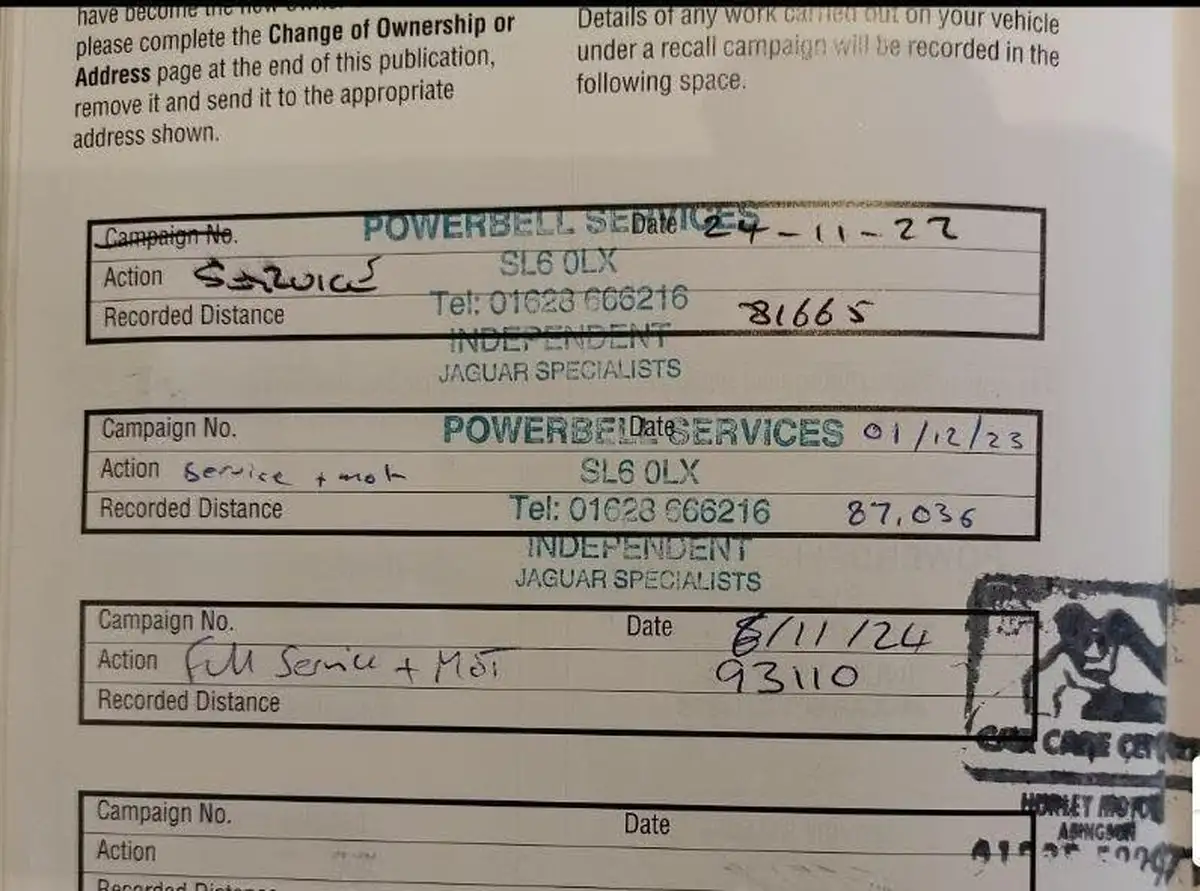 have become the new
please complete the Change of Ownership or
Address page at the end of this publication,
remove it and send it to the appropriate
address shown.
Details of any work carried out on your vehicle
under a recall campaign will be recorded in the
following space.
Campaign No. POWERBELL SERVICES Date 24-11-22
Action Service SL6 0LX
Recorded Distance Tel: 01628 666216 81665
INDEPENDENT
JAGUAR SPECIALISTS
Campaign No. POWERBELL SERVICES Date 01/12/23
Action Service + mot SL6 0LX
Recorded Distance Tel: 01628 666216 87,036
INDEPENDENT
JAGUAR SPECIALISTS
Campaign No. Date 8/11/24
Action Full Service + MOT 93110
Recorded Distance
CAR CARE
Campaign No. Date
HURLEY
ABINGDON
Action
Recorded Distance